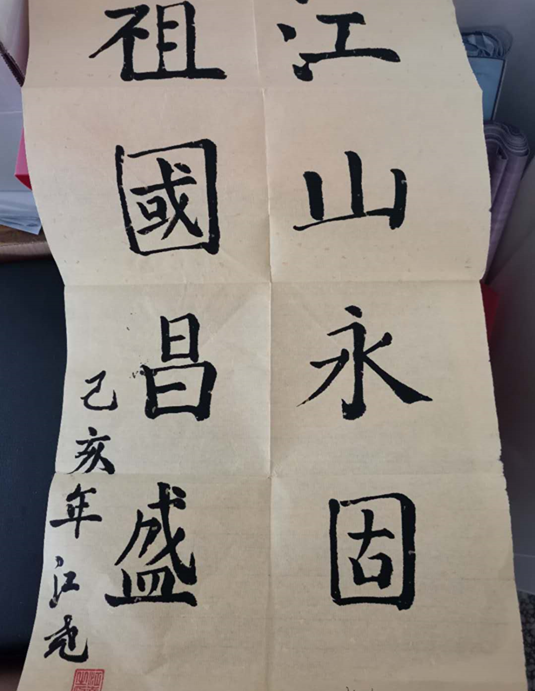 江山永固
祖國昌盛
己亥年江尧